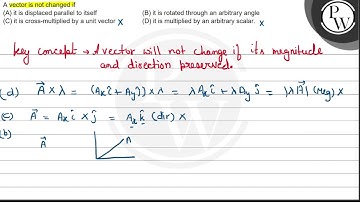 A vector is not changed if
(A) it is displaced parallel to itself (B) it is rotated through an arbitrary angle
(C) it is cross-multiplied by a unit vector x (D) it is multiplied by an arbitrary scalar. x
Key concept → A vector will not change if its magnitude
and direction preserved.
(d) A⃗ × λ = (Axî + Ayĵ) × λ = λ Ax î + λ Ay ĵ = |λ A⃗| (mag) x
(c) A⃗ = Ax î × ĵ = Ax k̂ (dir) x
(b) A⃗ A